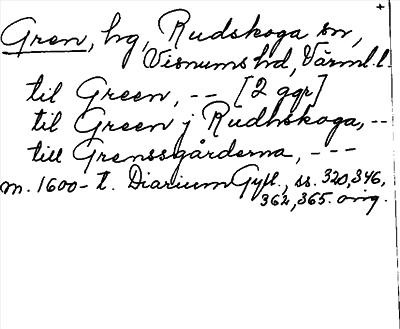 +
Gren, hg, Rudskoga sn,
Visnums hd, Värml. l.
til Green, -- [2 ggr]
til Green j Rudhskoga, --
till Grenssgårderna, ---
m. 1600-t. Diarium Gyll., ss. 320, 346,
362, 365. orig.